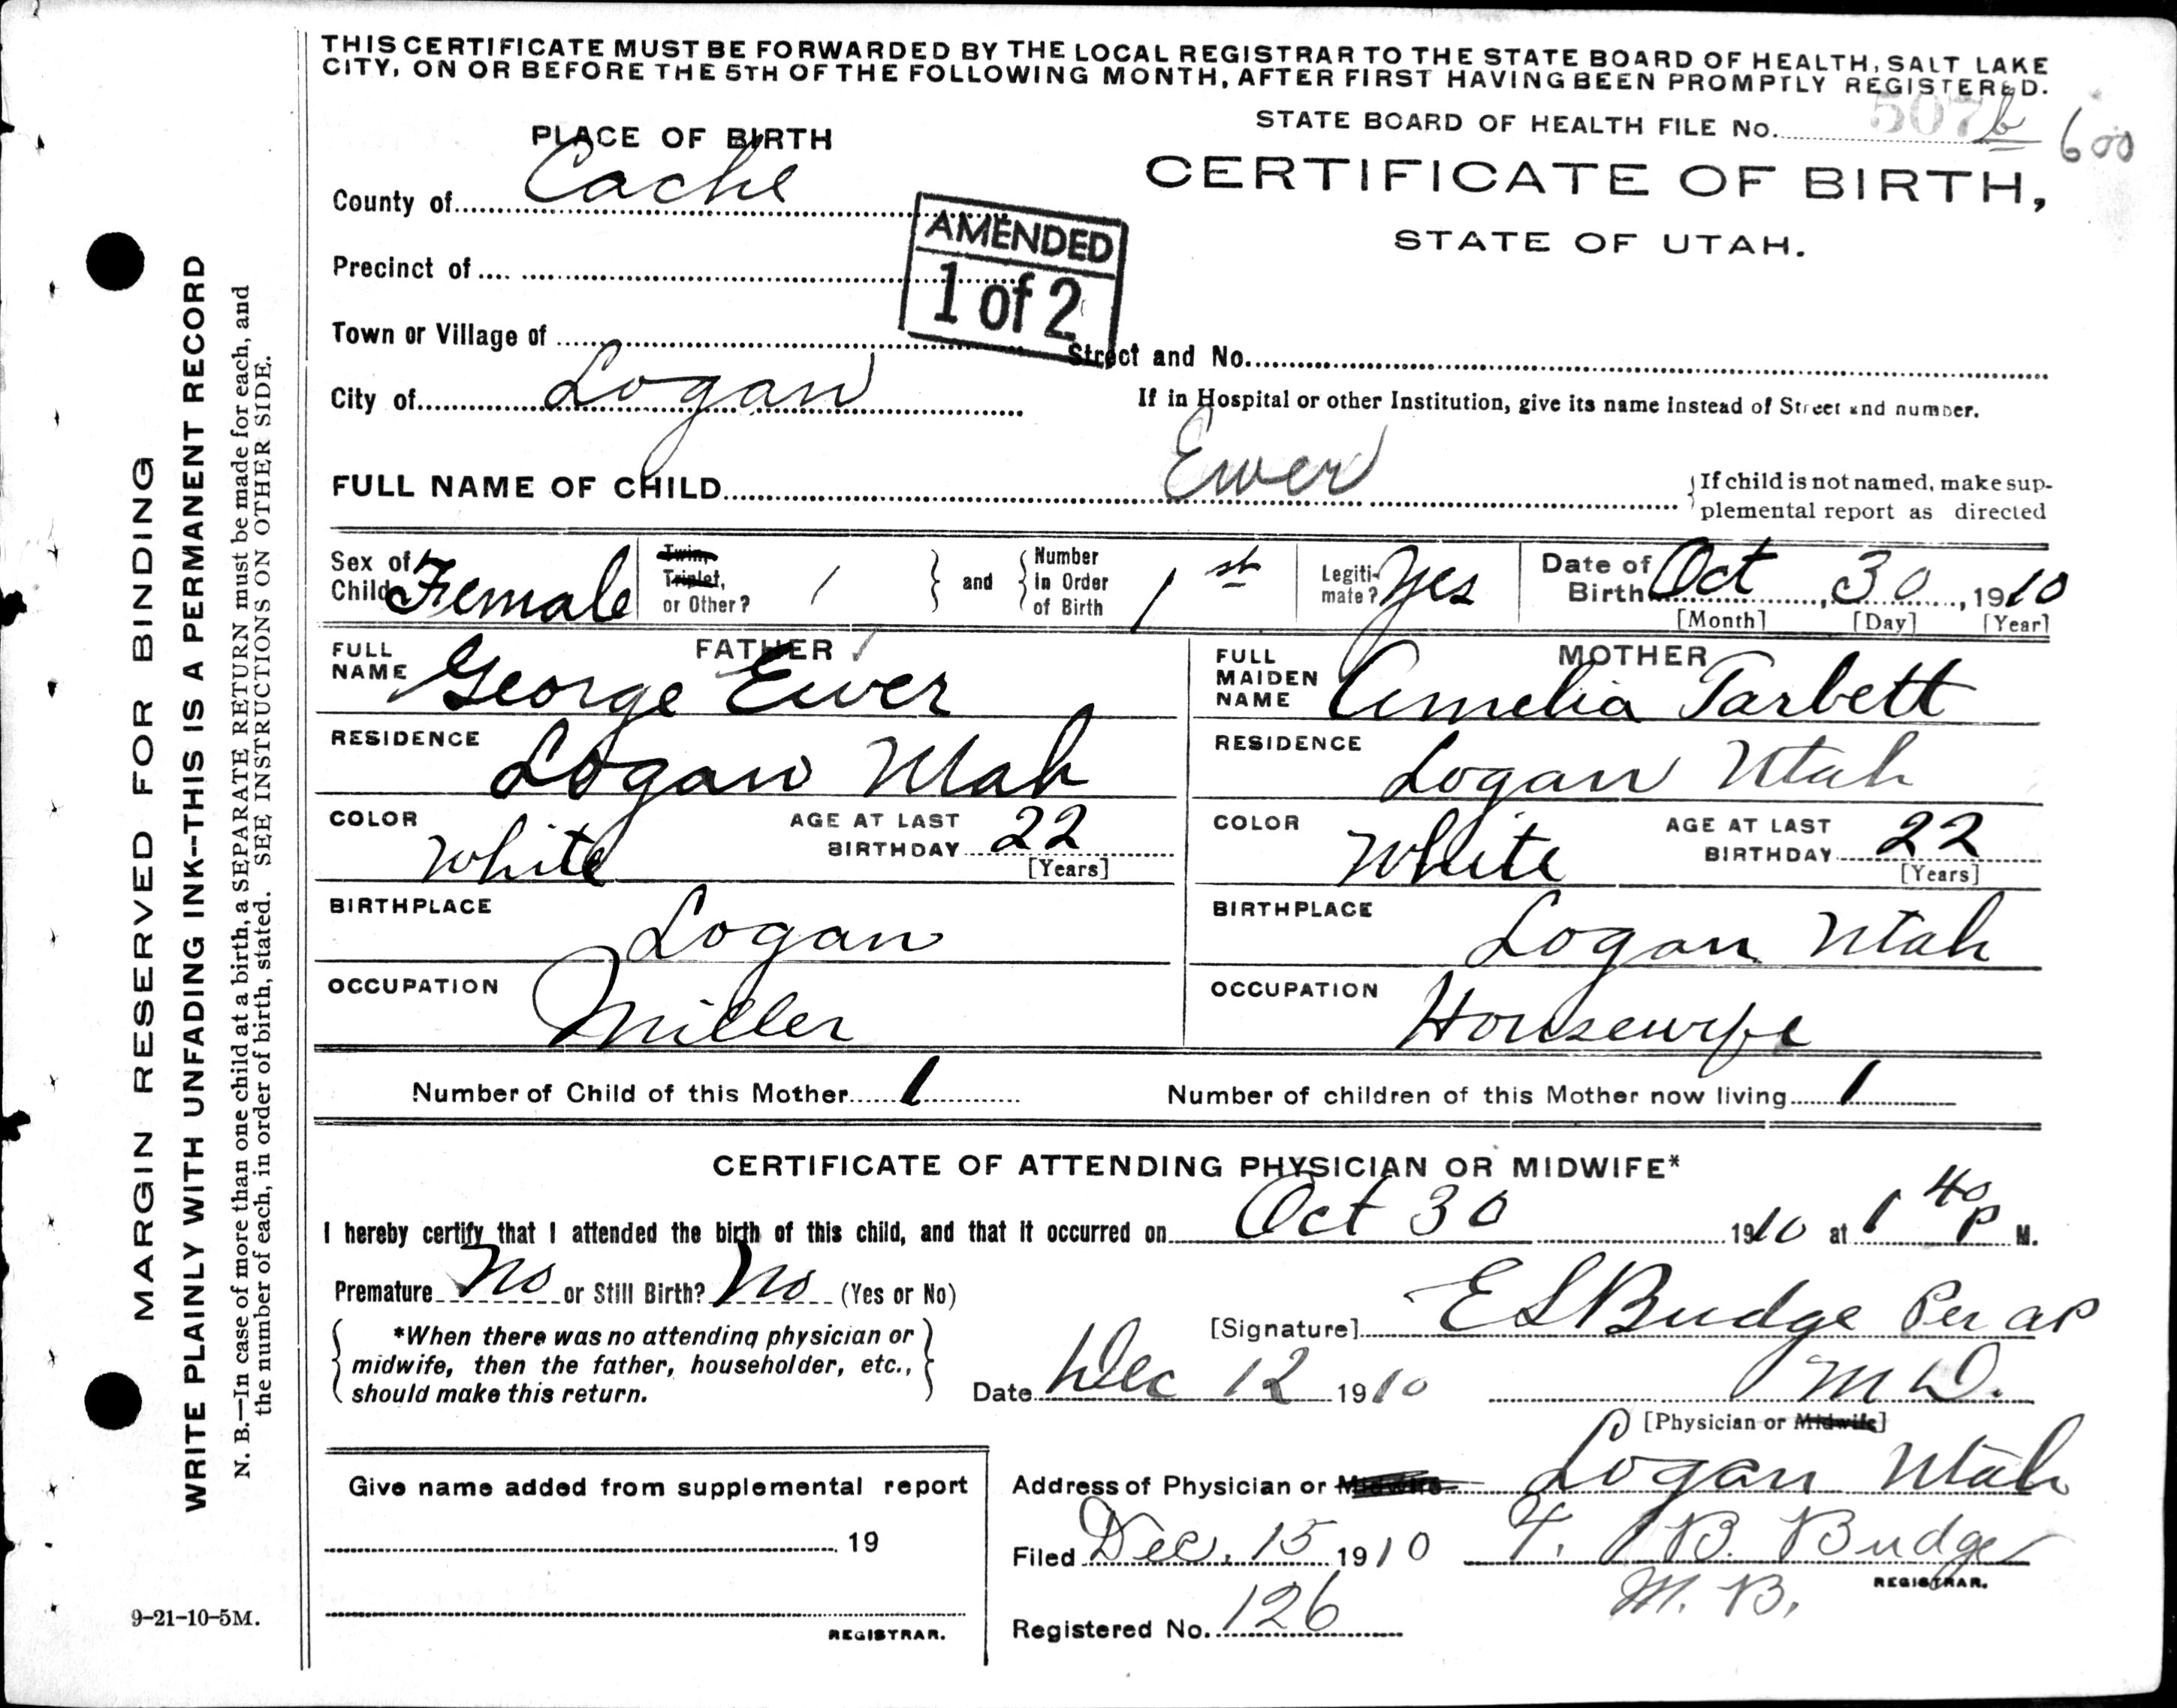 THIS CERTIFICATE MUST BE FORWARDED BY THE LOCAL REGISTRAR TO THE STATE BOARD OF HEALTH, SALT LAKE
CITY, ON OR BEFORE THE 5TH OF THE FOLLOWING MONTH, AFTER FIRST HAVING BEEN PROMPTLY REGISTERED.
STATE BOARD OF HEALTH FILE No. 507
PLACE OF BIRTH
CERTIFICATE OF BIRTH,
STATE OF UTAH.
County of Cache
AMENDED
1 of 2
Precinct of
Town or Village of
Street and No.
City of Logan
If in Hospital or other Institution, give its name instead of Street and number.
FULL NAME OF CHILD Ewer
If child is not named, make sup-
plemental report as directed
Sex of Child Female
Twin, Triplet, or Other? 1
and
Number in Order of Birth 1st
Legiti-mate? Yes
Date of Birth Oct, 30, 1910
[Month] [Day] [Year]
FATHER
FULL NAME George Ewer
RESIDENCE Logan Utah
COLOR White
AGE AT LAST BIRTHDAY 22
[Years]
BIRTHPLACE Logan
OCCUPATION Miller
MOTHER
FULL MAIDEN NAME Amelia Tarbett
RESIDENCE Logan Utah
COLOR White
AGE AT LAST BIRTHDAY 22
[Years]
BIRTHPLACE Logan Utah
OCCUPATION Housewife
Number of Child of this Mother 1
Number of children of this Mother now living 1
CERTIFICATE OF ATTENDING PHYSICIAN OR MIDWIFE*
I hereby certify that I attended the birth of this child, and that it occurred on Oct 30 1910 at 1 40 P M.
Premature No or Still Birth? No (Yes or No)
*When there was no attending physician or
midwife, then the father, householder, etc.,
should make this return.
[Signature] E S Budge Per
Date Dec 12 1910
M D.
[Physician or Midwife]
Give name added from supplemental report
19
REGISTRAR.
Address of Physician or Midwife Logan Utah
Filed Dec. 15 1910 T. B. Budge
REGISTRAR.
M. B.
Registered No. 126
MARGIN RESERVED FOR BINDING
WRITE PLAINLY WITH UNFADING INK--THIS IS A PERMANENT RECORD
N. B.—In case of more than one child at a birth, a SEPARATE RETURN must be made for each, and
the number of each, in order of birth, stated. SEE INSTRUCTIONS ON OTHER SIDE.
9-21-10-5M.